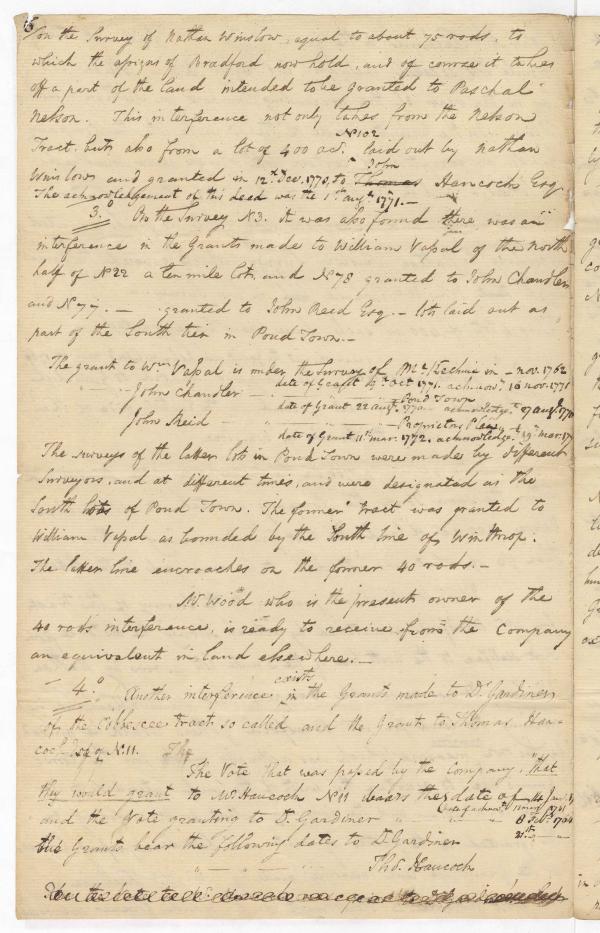 on the Survey of Nathan Winslow, equal to about 75 rods, to
which the assigns of Bradford now hold, and of course it takes
off a part of the land intended to be granted to Paschal
Nelson. This interference not only takes from the Nelson
No 102
Tract, but also from a lot of 400 acs. laid out by Nathan
John
Winslow and granted in 12th Decr. 1770, to Thomas Hancock Esq.
The acknowledgement of this deed was the 1st augt. 1771.—
3. On the Survey N3. it was also found there was an
interference in the Grants made to William Vassal of the North
half of No 22 a ten mile lot, and No 78 granted to John Chandler
and No 77. — granted to John Reed Esq. — lots laid out as
part of the South tier in Pond Town.—
The grant to Wm Vassal is under the survey of McKechnie in — nov. 1762
date of Grant 9th Oct 1771. acknow. 16 nov. 1771
John Chandler — Pond Town
date of Grant 22 augt. 1770 acknowledgt. 27 augt. 1770
John Reid — Proprietors Plan
date of Grant 11th mar. 1772. acknowledg. 19th mar. 17
The surveys of the latter lots in Pond Town were made by different
Surveyors, and at different times, and were designated as the
South lots of Pond Town. The former tract was granted to
William Vassal as bounded by the South line of Winthrop.
The latter line encroaches on the former 40 rods.—
Mr. Wood who is the present owner of the
40 rods interference, is ready to receive from the Company
an equivalent in land elsewhere.—
4o. Another interference exists in the Grants made to Dr. Gardiner
of the Cobbescee tract so called and the Grant to Thomas Han-
cock Esq of No 11. The
The Vote that was passed by the Company, "that
they would grant to Mr Hancock No 11 bears the date of
and the Vote granting to Dr. Gardiner " " 8 Feby.
the Grants bear the following dates to Dr. Gardiner
" — " — " Thos. Hancock